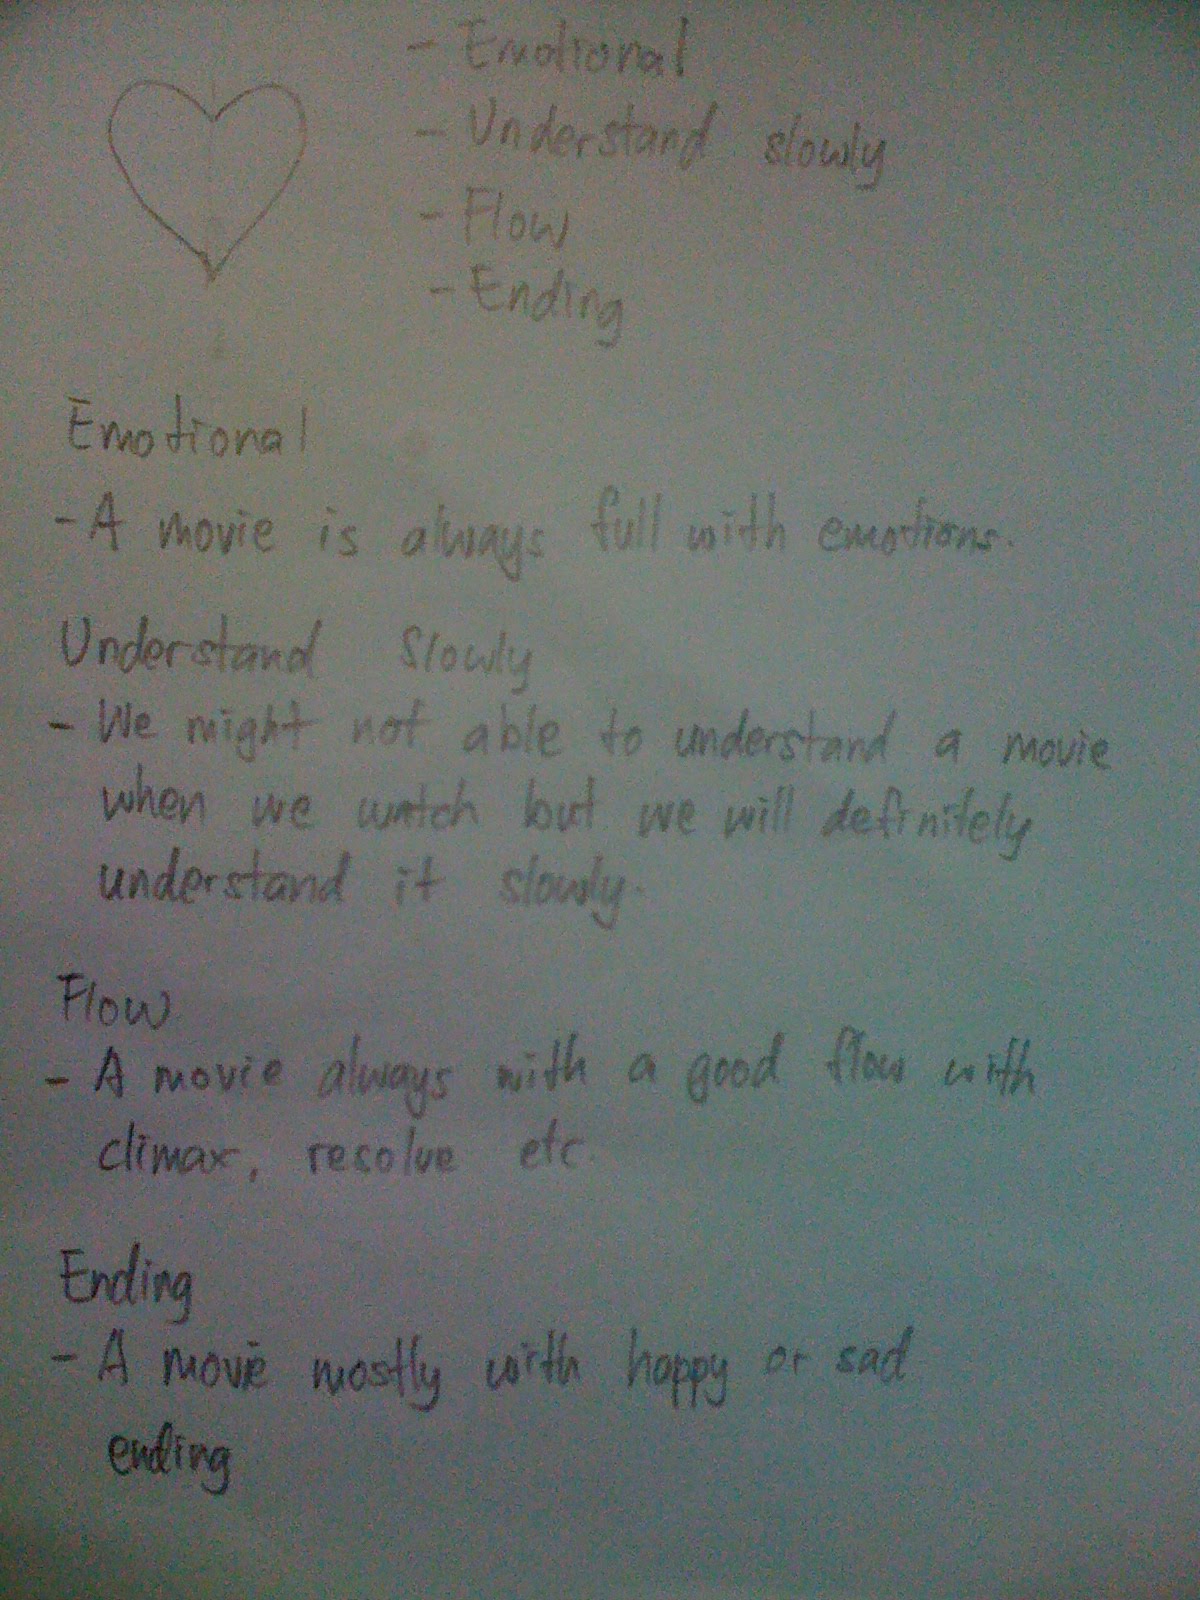 - Emotional
- Understand slowly
- Flow
- Ending
Emotional
- A movie is always full with emotions.
Understand Slowly
- We might not able to understand a movie
when we watch but we will definitely
understand it slowly.
Flow
- A movie always with a good flow with
climax, resolve etc.
Ending
- A movie mostly with happy or sad
ending